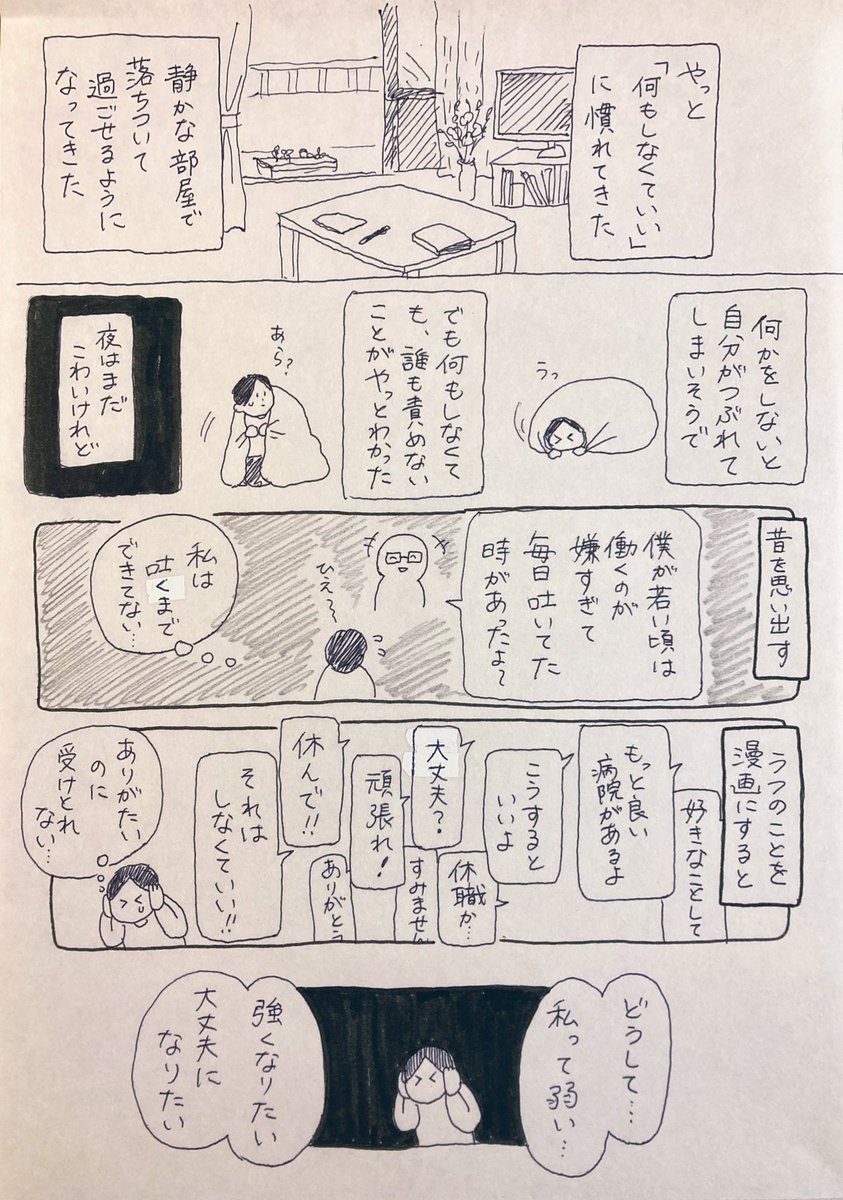 やっと
「何もしなくていい」
に慣れてきた
静かな部屋で
落ちついて
過ごせるように
なってきた
何かをしないと
自分がつぶれて
しまいそうで
うっ
でも何もしなくて
も、誰も責めない
ことがやっとわかった
あら?
夜はまだ
こわいけれど
昔を思い出す
僕が若い頃は
働くのが
嫌すぎて
毎日吐いてた
時があったよ?
ひえ〜
私は
吐くまで
できてない…
うつのことを
漫画にすると
好きなことして
もっと良い
病院があるよ
こうすると
いいよ
休職か…
大丈夫?
すみません
頑張れ!
休んで!!
ありがとう
それは
しなくていい!!
ありがたい
のに
受けとれ
ない…
どうして…
私って弱い…
強くなりたい
大丈夫に
なりたい